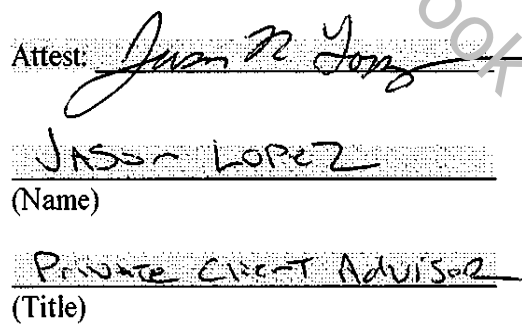 Attest: Jason N Lopez
JASON LOPEZ
(Name)
Private Client Advisor
(Title)
ook